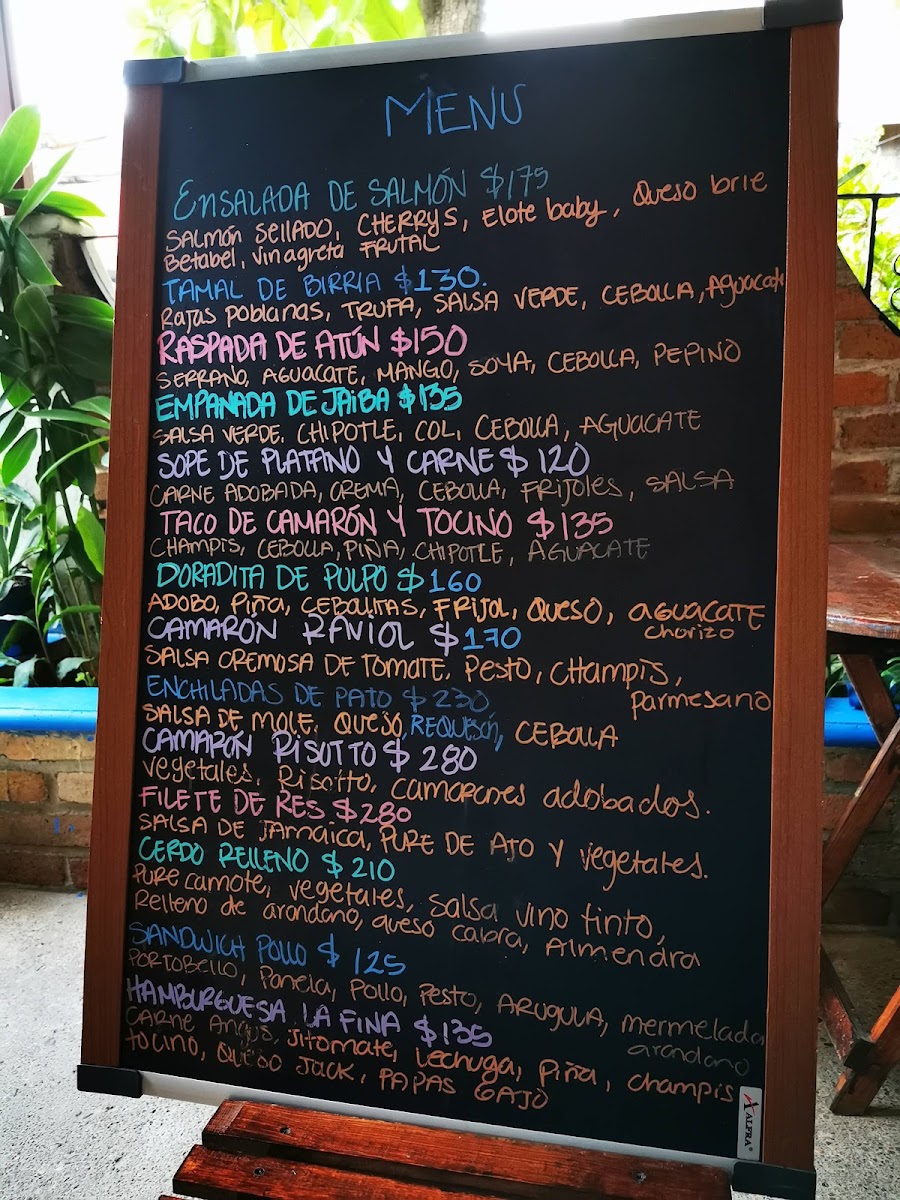 MENU
ENSALADA DE SALMÓN $175
SALMÓN SELLADO, CHERRYS, Elote baby, Queso brie
Betabel, vinagreta FRUTAL
TAMAL DE BIRRIA $130.
Rajas poblanas, TRUFA, SALSA VERDE, CEBOLLA, Aguacate
RASPADA DE ATÚN $150
SERRANO, AGUACATE, MANGO, SOYA, CEBOLLA, PEPINO
EMPANADA DE JAIBA $135
SALSA VERDE. CHIPOTLE, COL, CEBOLLA, AGUACATE
SOPE DE PLATANO Y CARNE $120
CARNE ADOBADA, CREMA, CEBOLLA, FRIJOLES, SALSA
TACO DE CAMARÓN Y TOCINO $135
CHAMPIS, CEBOLLA, PIÑA, CHIPOTLE, AGUACATE
DORADITA DE PULPO $160
ADOBO, PIÑA, CEBOLLITAS, FRIJOL, QUESO, AGUACATE
chorizo
CAMARÓN RAVIOL $170
SALSA CREMOSA DE TOMATE, PESTO, CHAMPIS,
parmesano
ENCHILADAS DE PATO $230
SALSA DE MOLE, QUESO, REQUESÓN, CEBOLLA
CAMARÓN RISOTTO $280
vegetales, Risotto, camarones adobados.
FILETE DE RES $280
SALSA DE JAMAICA, PURE DE AJO Y vegetales.
CERDO RELLENO $210
PURE camote, vegetales, salsa vino tinto,
Relleno de arandano, queso cabra, Almendra
SANDWICH POLLO $125
PORTOBELLO, Panela, Pollo, Pesto, ARUGULA, mermelada
arandano
HAMBURGUESA LA FINA $135
CARNE Angus, Jitomate, Lechuga, piña, champis
tocino, QUESO JACK, PAPAS GAJO
ALFRA®